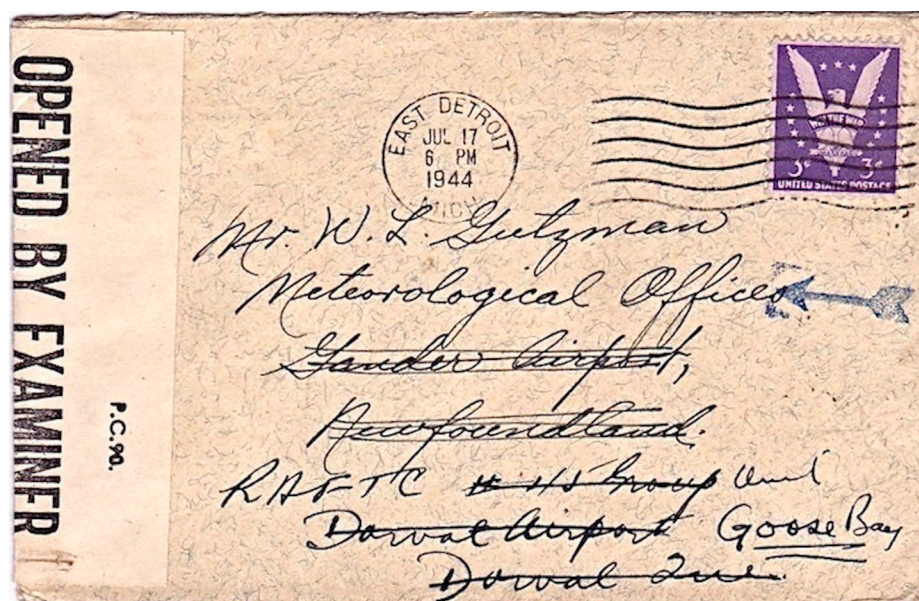 OPENED BY EXAMINER
P.C.90.
EAST DETROIT
JUL 17
6 PM
1944
MICH.
WIN THE WAR
3¢ 3¢
UNITED STATES POSTAGE
Mr. W. L. Gutzman
Meteorological Office
Gander Airport,
Newfoundland.
RAFTC # 45 Group Unit
Dorval Airport Goose Bay
Dorval Que.